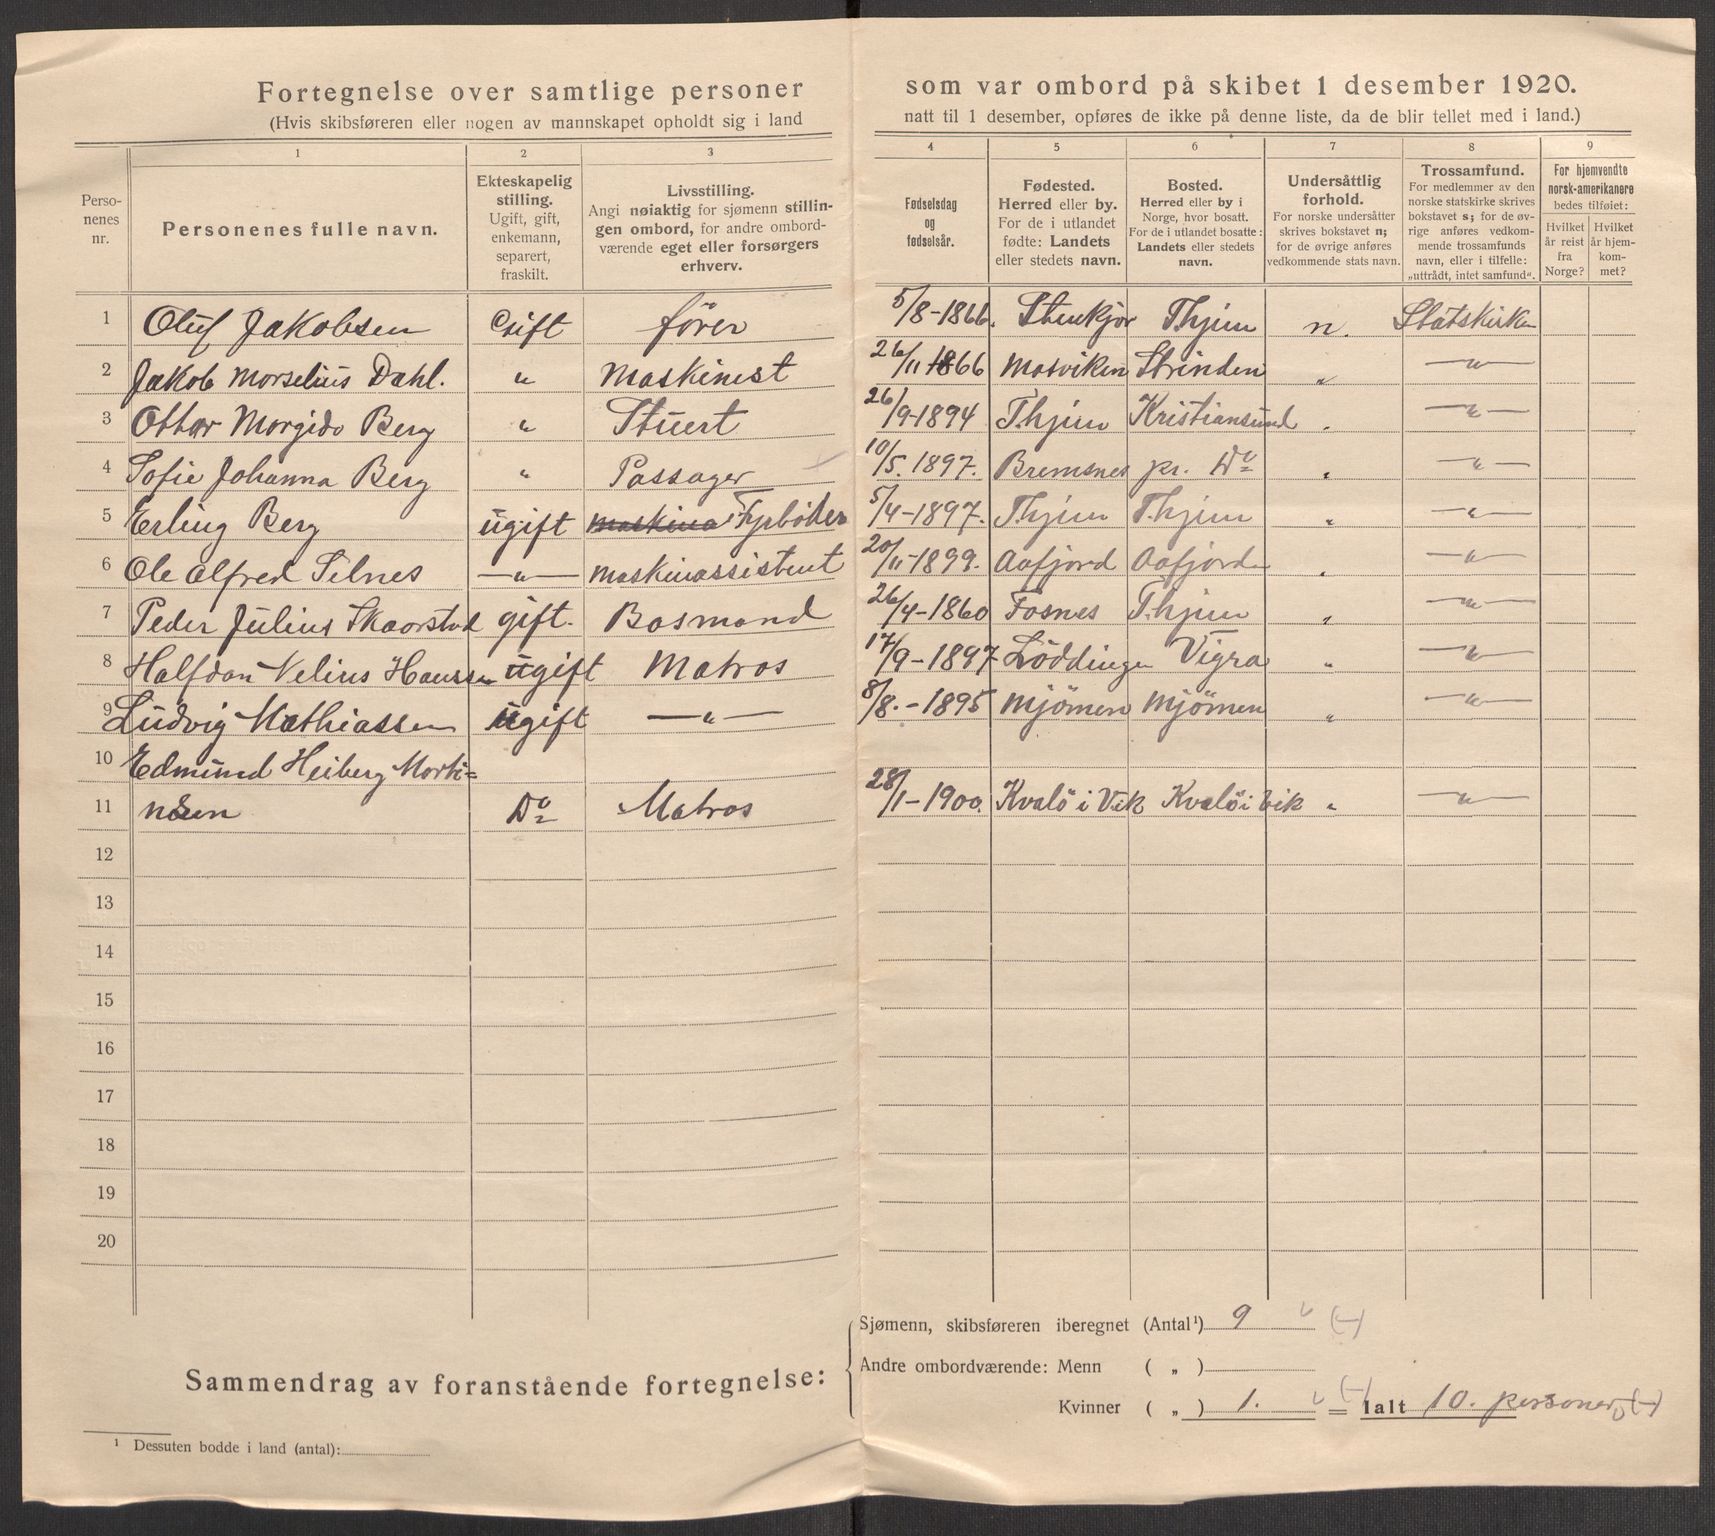 Fortegnelse over samtlige personer som var ombord på skibet 1 desember 1920.
(Hvis skibsføreren eller nogen av mannskapet opholdt sig i land natt til 1 desember, opføres de ikke på denne liste, da de blir tellet med i land.)
1 2 3 4 5 6 7 8 9
Perso-
nenes
nr.
Personenes fulle navn.
Ekteskapelig
stilling.
Ugift, gift,
enkemann,
separert,
fraskilt.
Livsstilling.
Angi nøiaktig for sjømenn stillin-
gen ombord, for andre ombord-
værende eget eller forsørgers
erhverv.
Fødselsdag
og
fødselsår.
Fødested.
Herred eller by.
For de i utlandet
fødte: Landets
eller stedets navn.
Bosted.
Herred eller by i
Norge, hvor bosatt.
For de i utlandet bosatte:
Landets eller stedets
navn.
Undersåttlig
forhold.
For norske undersåtter
skrives bokstavet n;
for de øvrige anføres
vedkommende stats navn.
Trossamfund.
For medlemmer av den
norske statskirke skrives
bokstavet s; for de øv-
rige anføres vedkom-
mende trossamfunds
navn, eller i tilfelle:
„uttrådt, intet samfund“.
For hjemvendte
norsk-amerikanere
bedes tilføiet:
Hvilket
år reist
fra
Norge?
Hvilket
år hjem-
kom-
met?
1 Oluf Jakobsen Gift fører 5/8-1866. Stenkjør Thjem n. Statskirken
2 Jakob Morselius Dahl. " Maskinist 26/11-1866 Mosviken Strinden " —"—
3 Ottar Morgido Berg " Stuert 26/9-1894 Thjem Kristiansund . —"—
4 Sofie Johanna Berg " Passager 10/5. 1897. Bremsnes pr. Do " —"—
5 Erling Berg ugift maskina Fyrbøder 5/4-1897. Thjem Thjem " —"—
6 Ole Alfred Selnes —"— Maskinassistent 20/11-1899. Aafjord Aafjorden " —"—
7 Peder Julius Skaorstad gift. Bosmand 26/4-1860 Fosnes Thjem " —"—
8 Halfdan Velius Hanssen ugift Matros 17/9-1897 Løddingen Vigra " —"—
9 Ludvig Mathiassen ugift —"— 8/8.-1895 Mjömen Mjömen " —"—
10 Edmund Heiberg Morti=
11 nsen Do Matros 28/1-1900. Kvalö i Vik Kvalö i Vik " —"—
12
13
14
15
16
17
18
19
20
Sammendrag av foranstående fortegnelse:
Sjømenn, skibsføreren iberegnet (Antal¹) 9 (-)
Andre ombordværende: Menn ( „ )
Kvinner ( „ ) 1. (-) = Ialt 10. personer (-)
¹ Dessuten bodde i land (antal):